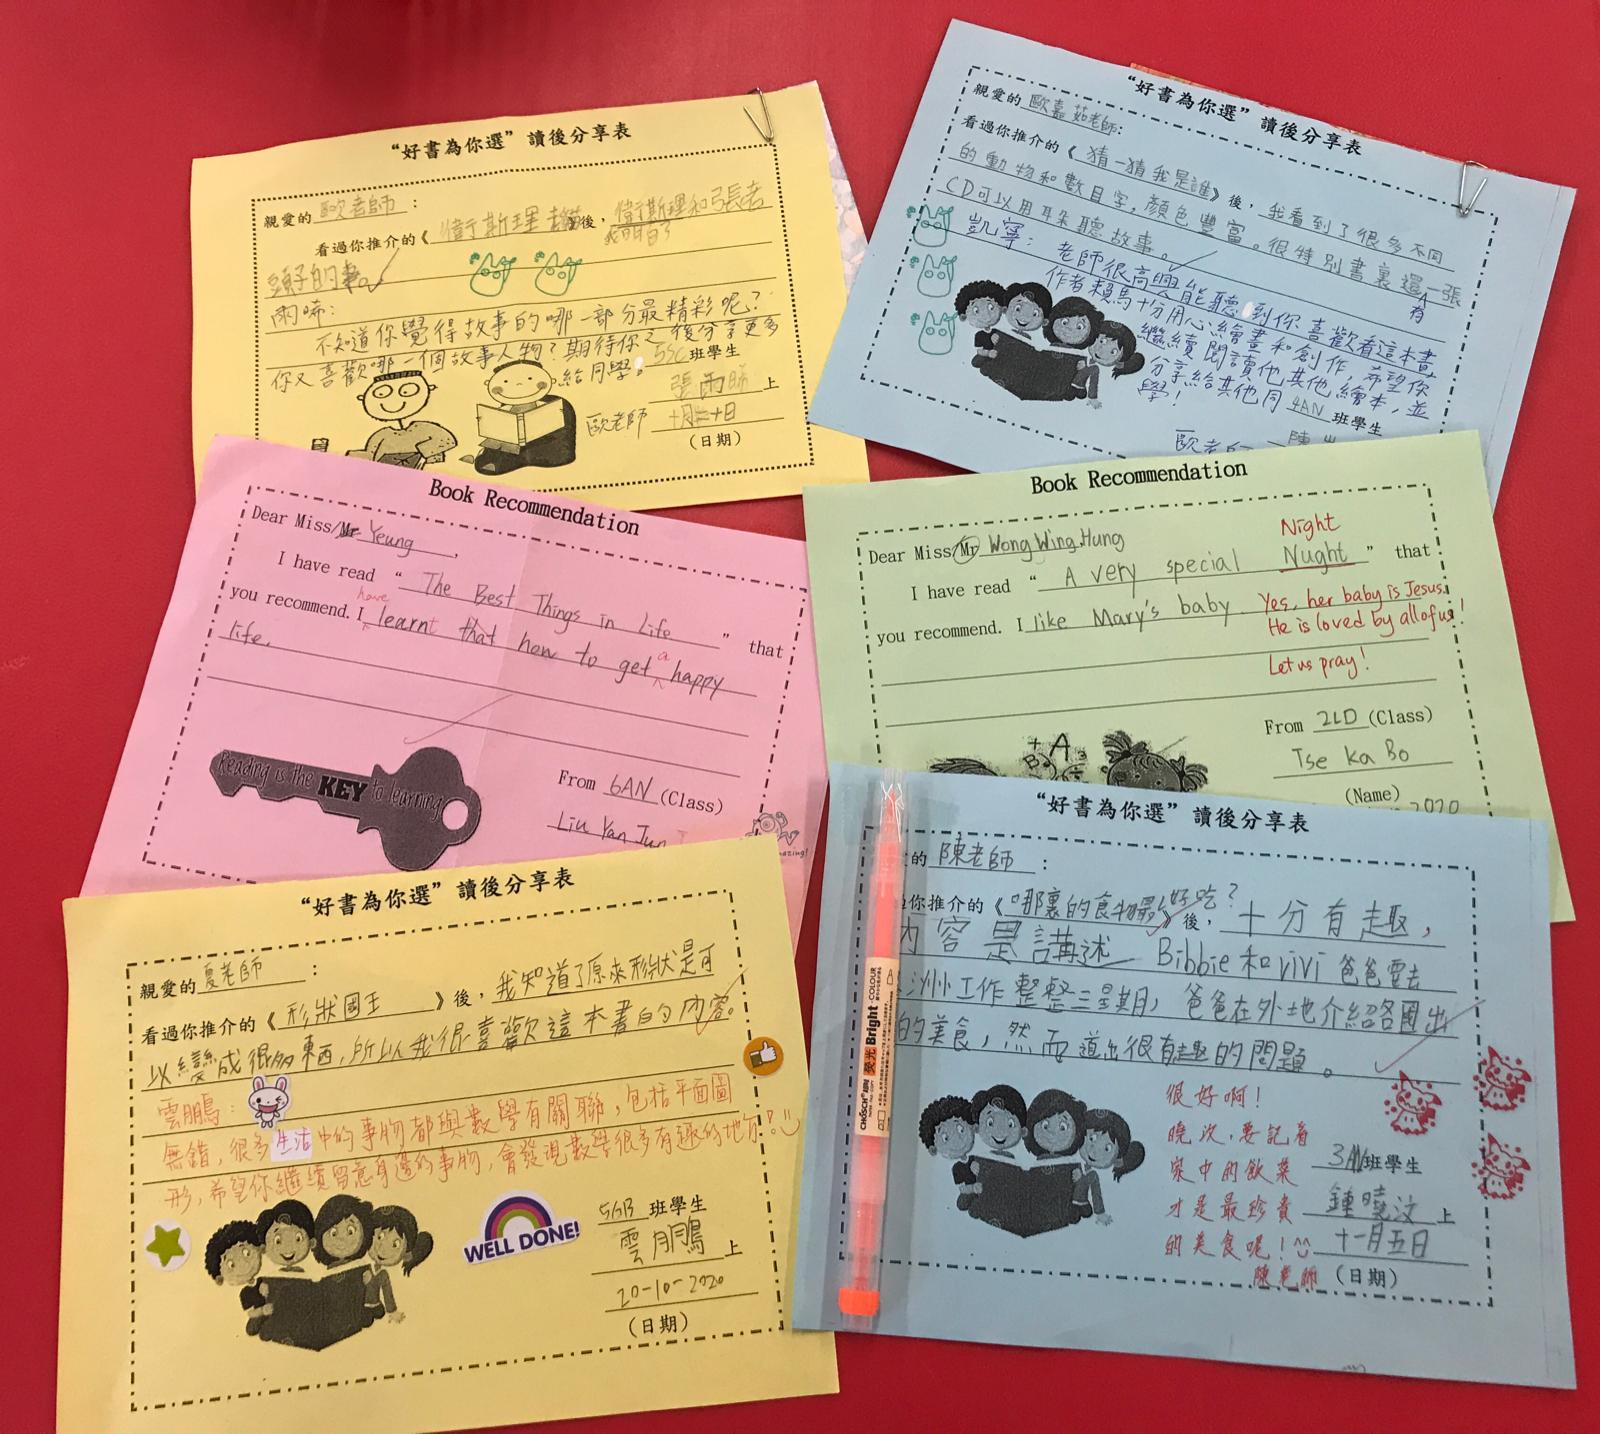 “好書為你選”讀後分享表
親愛的 歐老師 :
看過你推介的《衛斯理 後，衛斯理和張老
頭子的事。
雨晞:
不知道你覺得故事的哪一部分最精彩呢?
你又喜歡哪一個故事人物?期待你之後分享更多
給同學。
5SC 班學生
張雨晞 上
歐老師
十月二十日
(日期)
“好書為你選”讀後分享表
親愛的 歐嘉茹老師:
看過你推介的《猜一猜我是誰》後，我看到了很多不同
的動物和數目字，顏色豐富。很特別書裏還一張
有
CD可以用耳朵聽故事。
凱寧: 老師很高興能聽到你喜歡看這本書,
作者賴馬十分用心繪畫和創作,希望你
繼續閱讀他其他繪本,並
分享給其他同
學!
4AN 班學生
歐老師 陳
Book Recommendation
Dear Miss/Mr Yeung ,
I have read “ The Best Things in Life ” that
you recommend. I have learnt that how to get a happy
life.
Reading is the KEY to learning
From 6AN (Class)
Liu Yan Jun
amazing!
Book Recommendation
Dear Miss/Mr Wong Wing Hung
Night
I have read “ A very special Nught ” that
you recommend. I like Mary's baby
Yes, her baby is Jesus.
He is loved by all of us!
Let us pray!
From 2LD (Class)
Tse Ka Bo
(Name)
2020
“好書為你選”讀後分享表
親愛的 夏老師 :
看過你推介的《形狀國王》後，我知道了原來形狀是可
以變成很多東西,所以我很喜歡這本書的內容。
雲鵬:
無錯,很多生活中的事物都與數學有關聯,包括平面圖
形,希望你繼續留意身邊的事物,會發現數學很多有趣的地方!
WELL DONE!
5GB 班學生
雲鵬 上
20-10-2020
(日期)
“好書為你選”讀後分享表
的 陳老師 :
你推介的《哪裏的食物最好吃?》後，十分有趣，
內容是講述 Bibbie和vivi爸爸要去
洲工作整整三星期，爸爸在外地介紹各國出
的美食，然而道出很有趣的問題。
CHOSCH 熒光 Bright-COLOUR
很好啊!
曉汶,要記着
家中的飲菜
才是最珍貴
的美食呢!
陳老師
3AN 班學生
鍾曉汶 上
十一月五日
(日期)